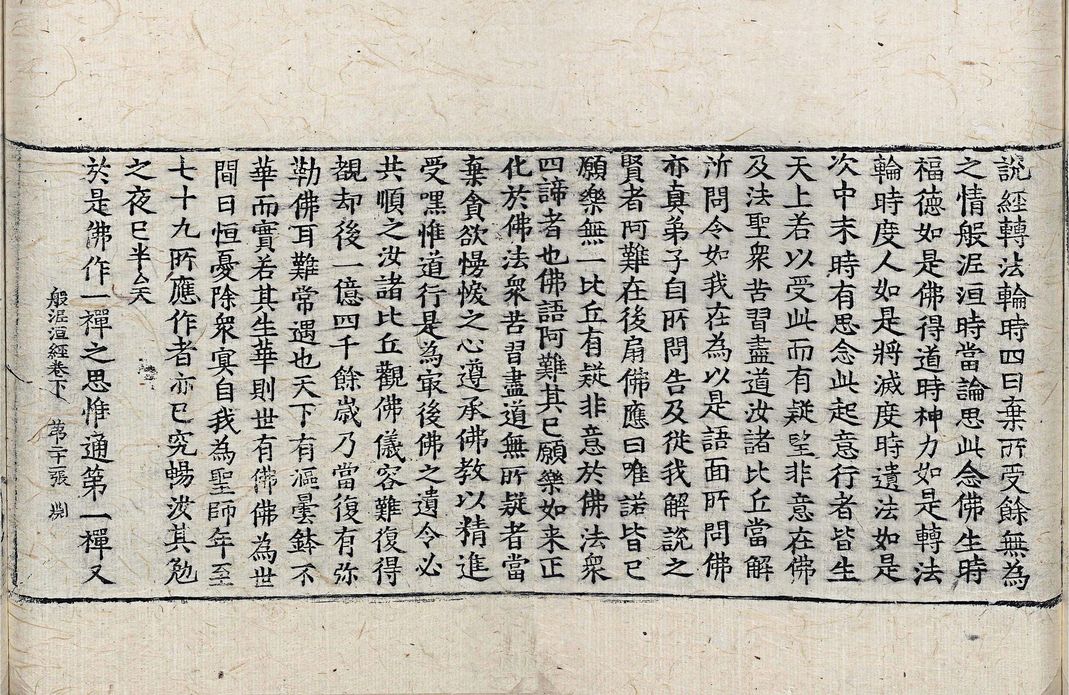 說經轉法輪時四曰棄所受餘無為
之情般泥洹時當論思此念佛生時
福德如是佛得道時神力如是轉法
輪時度人如是將滅度時遺法如是
次中末時有思念此起意行者皆生
天上若以受此而有疑望非意在佛
及法聖衆苦習盡道汝諸比丘當解
所問令如我在為以是語面所問佛
亦真弟子自所問告及從我解說之
賢者阿難在後扇佛應曰唯諾皆已
願樂無一比丘有疑非意於佛法衆
四諦者也佛語阿難其已願樂如来正
化於佛法衆苦習盡道無所疑者當
棄貪欲慢之心遵承佛教以精進
受嘿惟道行是為㝡後佛之遺令必
共順之汝諸比丘觀佛儀容難復得
覩却後一億四千餘歳乃當復有弥
勒佛耳難常遇也天下有漚曇鉢不
華而實若其生華則世有佛佛為世
間日恒憂除衆冥自我為聖師年至
七十九所應作者亦已究暢汝其勉
之夜已半矣
般泥洹經卷下 第二十張 淵
於是佛作一禪之思惟通第一禪又